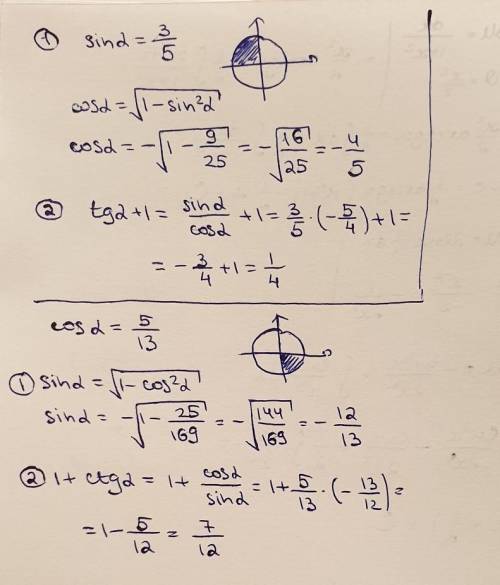 ① sinα = 3/5
cosα = √(1 − sin²α)
cosα = −√(1 − 9/25) = −√(16/25) = −4/5
② tgα + 1 = sinα/cosα + 1 = 3/5 · (−5/4) + 1 =
= −3/4 + 1 = 1/4
cosα = 5/13
① sinα = √(1 − cos²α)
sinα = −√(1 − 25/169) = −√(144/169) = −12/13
② 1 + ctgα = 1 + cosα/sinα = 1 + 5/13 · (−13/12) =
= 1 − 5/12 = 7/12